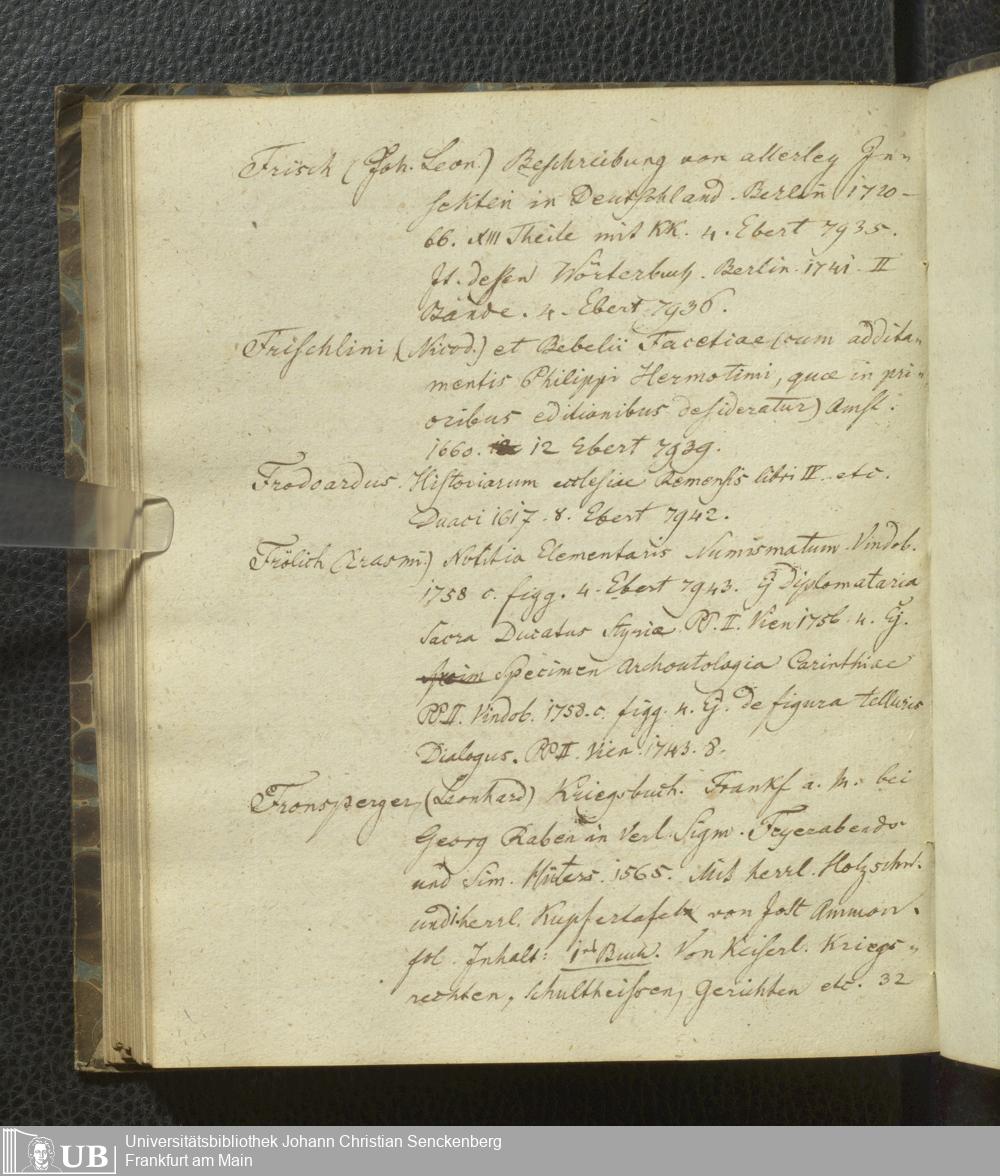 Frisch (Joh. Leon.) Beschreibung von allerley In-
sekten in Deutschland. Berlin 1720-
66. XIII Theile mit KK. 4. Ebert 7935.
It. dessen Wörterbuch. Berlin. 1741. II
Bände. 4. Ebert 7936.
Frischlini (Nicod.) et Bebelii Facetiae (cum addita-
mentis Philippi Hermotimi, quae in pri-
oribus editionibus desideratur) Amst.
1660. 12 Ebert 7939.
Frodoardus. Historiarum ecclesiae Remensis libri IV. etc.
Duaci 1617. 8. Ebert 7942.
Frölich (Erasmi.) Notitia Elementaris Numismatum. Vindob.
1758 c. figg. 4. Ebert 7943. Ej Diplomataria
Sacra Ducatus Styriae. PP. II. Vien 1756. 4. Ej.
Specimen Archontologia Carinthiae
PP II. Vindob. 1758. c. figg. 4. Ej. de figura telluris
Dialogus. PP II. Vien. 1743. 8.
Fronsperger, (Leonhard) Kriegsbuch. Frankf a. M. bei
Georg Raben in Verl. Sigm. Feyerabends
und Sim. Hüters. 1565. Mit herrl. Holzschn.
und herrl. Kupfertafeln von Jost Ammon.
fol. Inhalt: Buch. Von Keiserl. Kriegs-
rechten, Schultheissen, Gerichten etc. 32
UB
Universitätsbibliothek Johann Christian Senckenberg
Frankfurt am Main